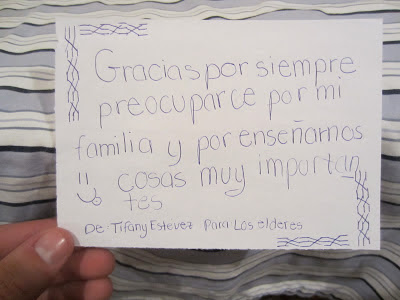 Gracias por siempre
preocuparce por mi
familia y por enseñarnos
cosas muy importan
tes
De: Tifany Estevez Para Los elderes